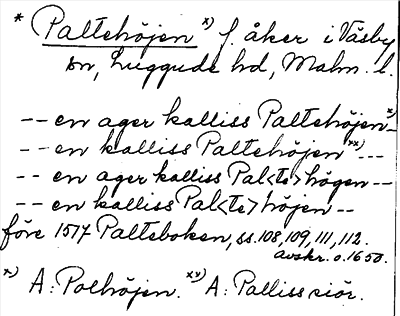 * Paltehöjen x) f. åker i Väsby
sn, Luggude hd, Malm. l.
-- en ager kalliss Paltehöjen x)--
-- en kalliss Paltehöjen xx)---
-- en ager kalliss Pal<te>högen--
-- en kalliss Pal<te>höjen--
före 1517 Palteboken, ss. 108, 109, 111, 112.
avskr. o. 1650.
x) A: Polhöjen. xx) A: Palliss siör.